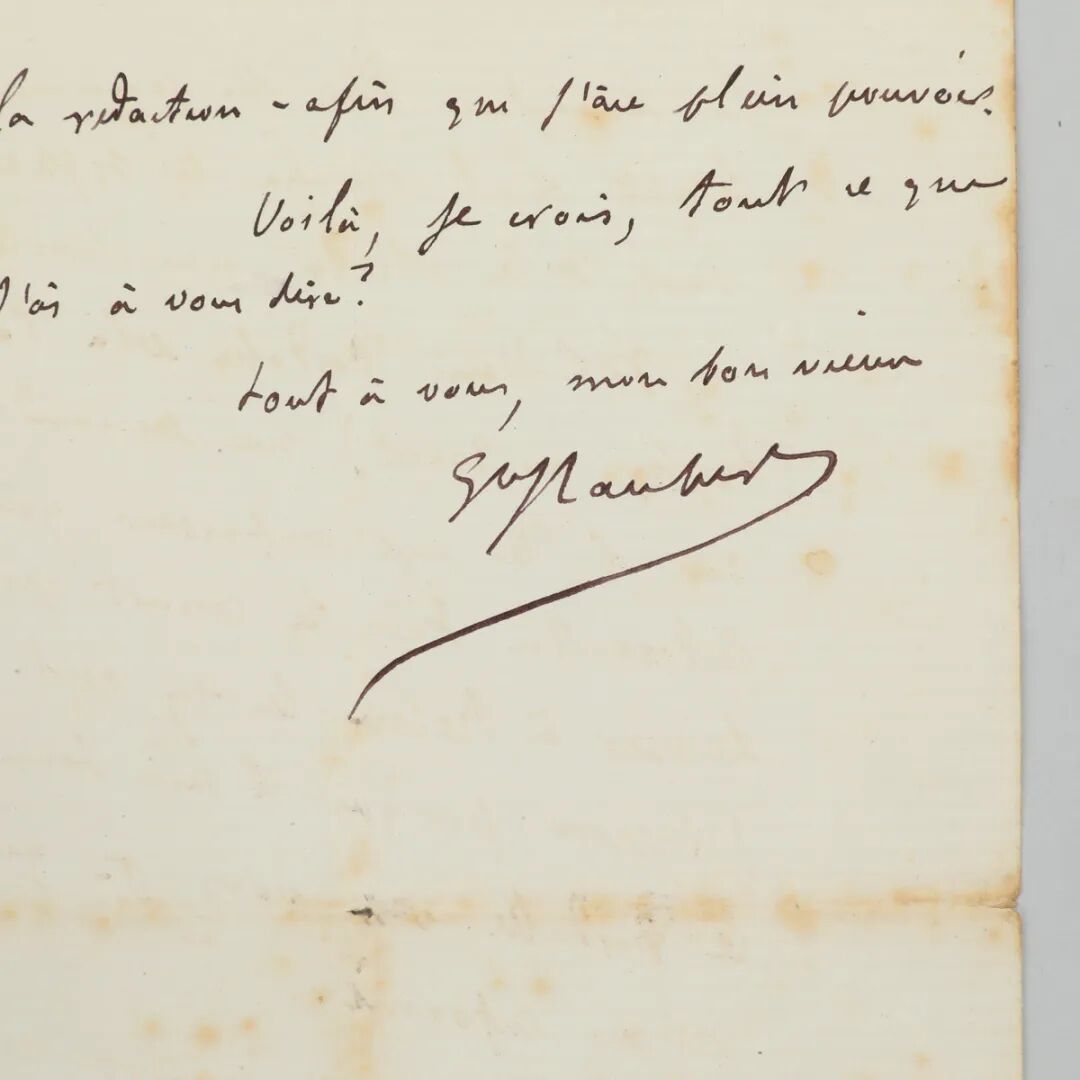 la rédaction - afin que j'aie plein pouvoir.
Voilà, je crois, tout ce que
j'ai à vous dire?
tout à vous, mon bon vieux
Gve Flaubert